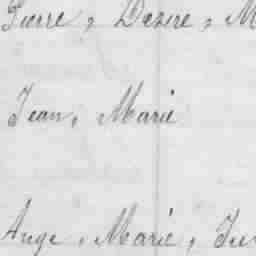 Pierre, Désiré, M
Jean, Marie
Ange, Marie,